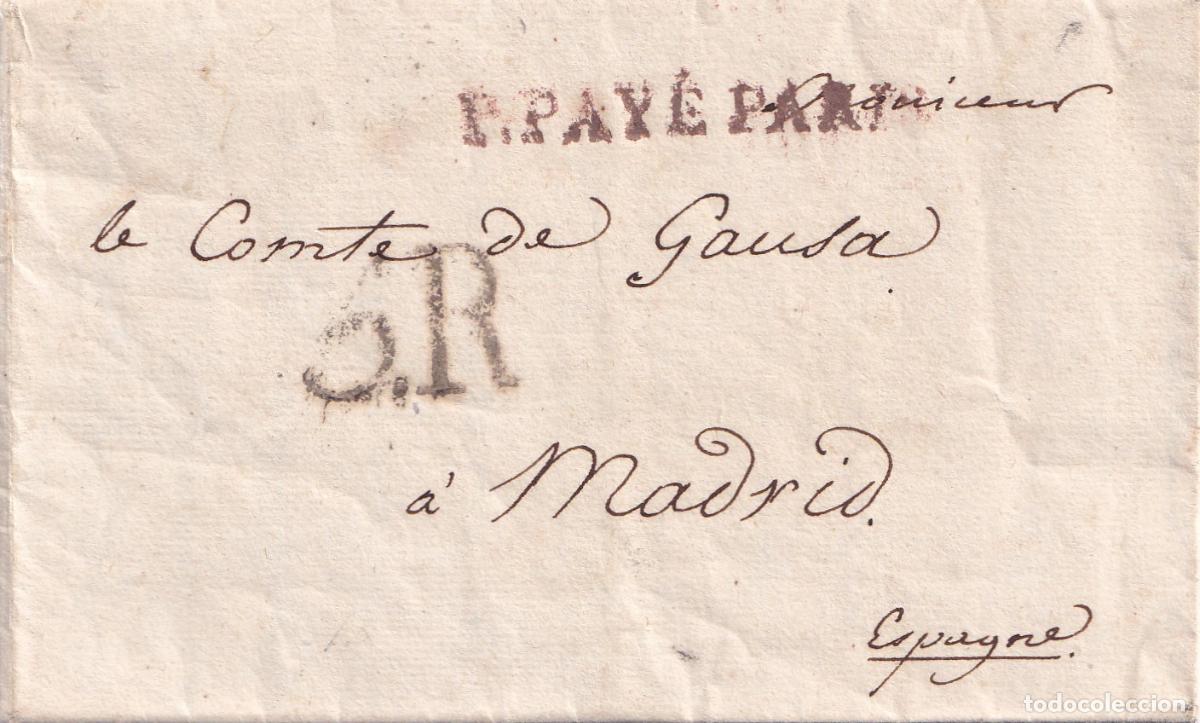 Monsieur
P.PAYÉ PARIS
le Comte de Gausa
6.R
à Madrid.
Espagne.
todocoleccion